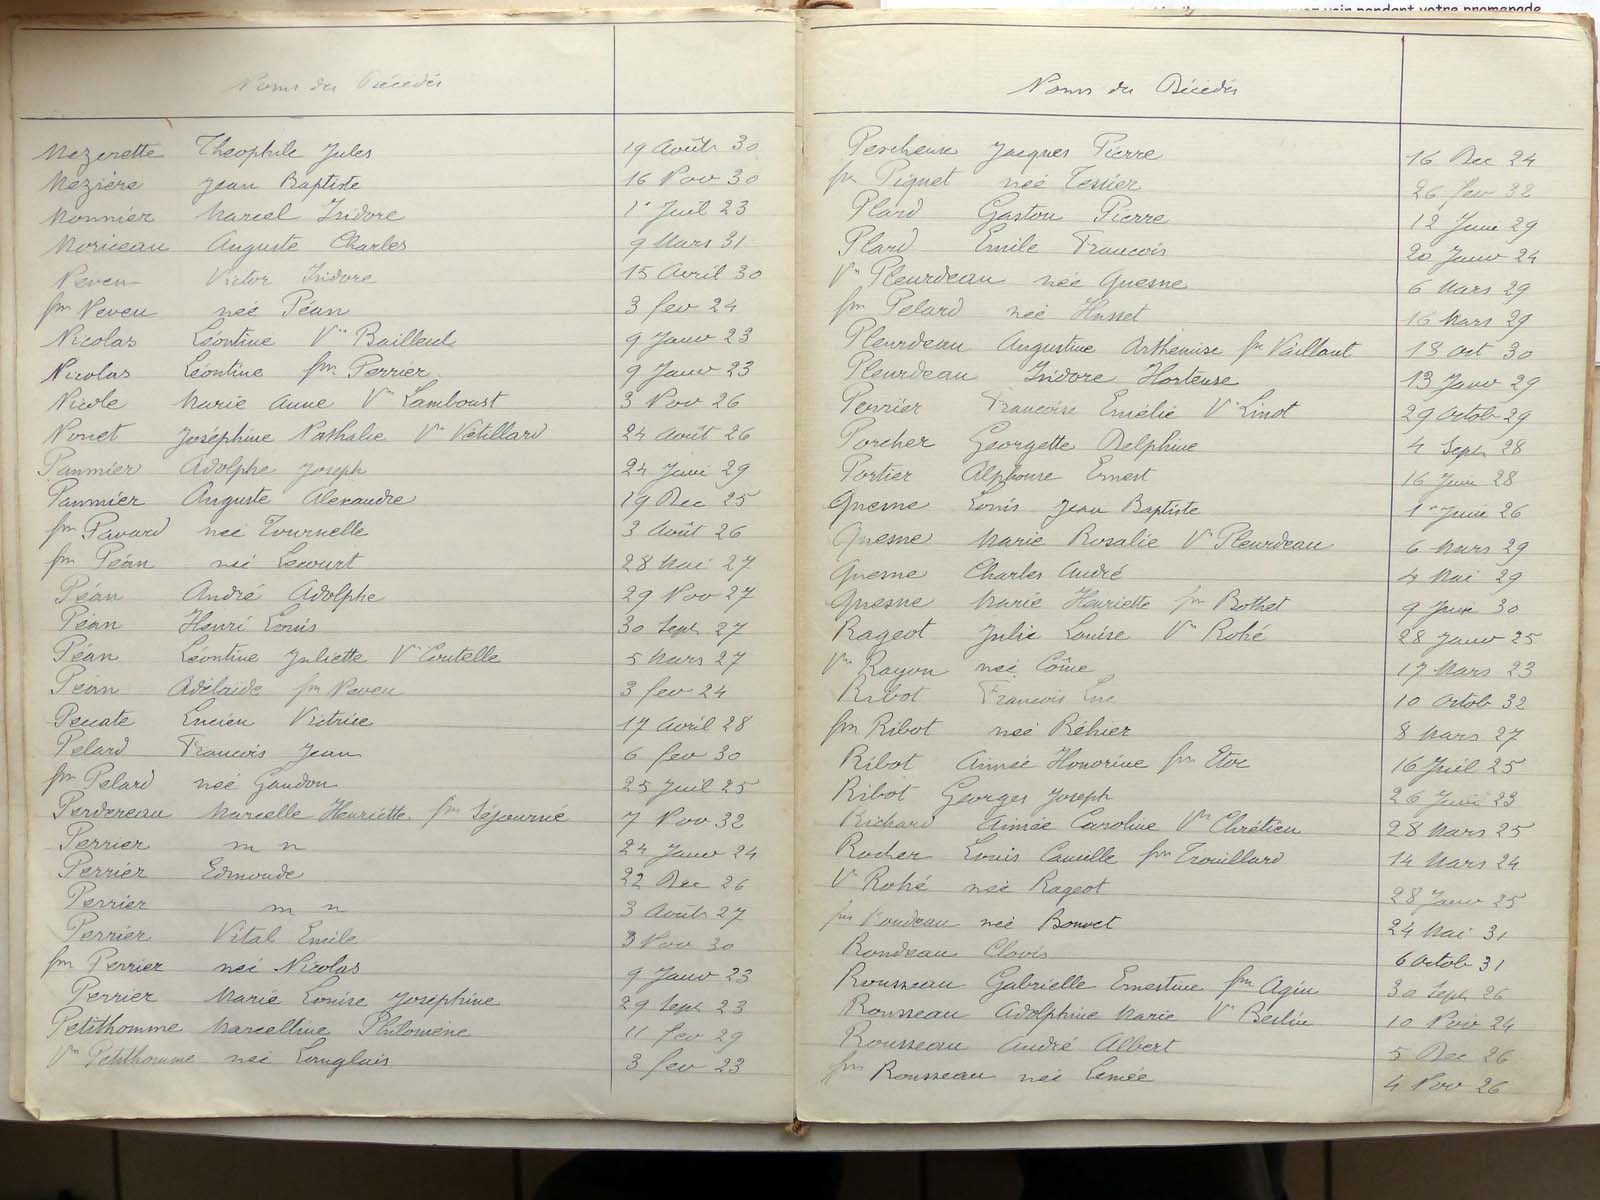 voir pendant votre promenade
Noms des Décédés
Mezerette Théophile Jules 19 Août 30
Mezière Jean Baptiste 16 Nov 30
Monnier Marcel Isidore 1er Juil 23
Moriceau Auguste Charles 9 Mars 31
Neveu Victor Isidore 15 Avril 30
fm Neveu neé Péan 3 fev 24
Nicolas Léontine Vve Bailleul 9 Janv 23
Nicolas Léontine fm Perrier 9 Janv 23
Nicole Marie Anne Vve Lamboust 3 Nov 26
Nonet Joséphine Nathalie Vve Vétillard 24 Août 26
Panmier Adolphe Joseph 24 Juin 29
Panmier Auguste Alexandre 19 Dec 25
fm Pavard neé Tournelle 3 Août 26
fm Péan neé Lecourt 28 Mai 27
Péan André Adolphe 29 Nov 27
Péan Henri Louis 30 Sept 27
Péan Léontine Juliette Vve Coutelle 5 Mars 27
Péan Adélaïde fm Neveu 3 fev 24
Pecate Lucien Victrice 17 Avril 28
Pelard Francois Jean 6 fev 30
fm Pelard neé Gaudon 25 Juil 25
Perdereau Marcelle Henriette fm Séjourné 7 Nov 32
Perrier m n 24 Janv 24
Perrier Edmonde 22 Dec 26
Perrier m n 3 Août 27
Perrier Vital Emile 3 Nov 30
fm Perrier neé Nicolas 9 Janv 23
Perrier Marie Louise Joséphine 29 Sept 23
Petithomme Marcelline Philomène 11 fev 29
Vve Petithomme neé Langlais 3 fev 23
Noms des Décédés
Percheuse Jacques Pierre 16 Dec 24
fm Piquet neé Tessier 26 fev 32
Plard Gaston Pierre 12 Juin 29
Plard Emile Francois 20 Janv 24
Vve Pleurdeau née Quesne 6 Mars 29
fm Pelard neé Husset 16 Mars 29
Pleurdeau Augustine Arthemise fm Vaillant 18 Oct 30
Pleurdeau Isidore Hortense 13 Janv 29
Perrier Francoise Emélie Vve Linot 29 Octob 29
Porcher Georgette Delphine 4 Sept 28
Portier Alphonse Ernest 16 Juin 28
Quesne Louis Jean Baptiste 1er Juin 26
Quesne Marie Rosalie Vve Pleurdeau 6 Mars 29
Quesne Charles André 4 Mai 29
Quesne Marie Henriette fm Bothet 9 Juin 30
Rageot Julie Louise Vve Rohé 28 Janv 25
Vve Rayon neé Côme 17 Mars 23
Ribot Francois Luc 10 Octob 32
fm Ribot neé Béhier 8 Mars 27
Ribot Aimée Honorine fm Etoc 16 Juil 25
Ribot Georges Joseph 26 Juin 23
Richard Aimée Caroline Vve Chrétien 28 Mars 25
Rocher Louis Camille fm Trouillard 14 Mars 24
Vve Rohé neé Rageot 28 Janv 25
fm Rondeau neé Bonvet 24 Mai 31
Rondeau Clovis 6 Octob 31
Rousseau Gabrielle Ernestine fm Agin 30 Sept 26
Rousseau Adolphine Marie Vve Berlin 10 Nov 24
Rousseau André Albert 5 Dec 26
fm Rousseau neé Lemée 4 Nov 26